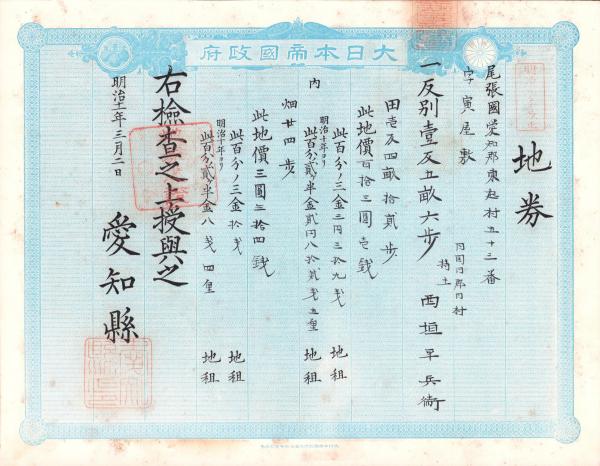 大日本帝國政府
地券
尾張國愛知郡東起村五十三番
字寅屋敷
同国同郡同村
持主
一反別壹反五畝六歩 西垣早兵衛
内
田壱反四畝拾貳歩
此地價百拾三圓壱銭
此百分ノ三金三円三拾九銭 地租
明治十年ヨリ
此百分ノ貳半金貳円八拾貳銭五厘 地租
畑廿四歩
此地價三圓三拾四銭
此百分ノ三金拾銭 地租
明治十年ヨリ
此百分ノ貳半金八銭四厘 地租
右檢査之上授與之
明治十一年三月二日
愛知縣